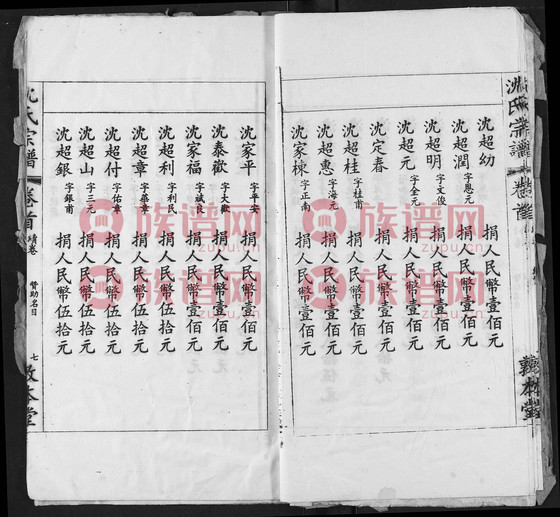 沈氏宗譜 卷首
沈超幼 捐人民幣壹佰元
沈超潤 字恩元 捐人民幣壹佰元
沈超明 字文俊 捐人民幣壹佰元
沈超元 字全元 捐人民幣壹佰元
沈定春 捐人民幣壹佰元
沈超桂 字桂甫 捐人民幣壹佰元
沈超惠 字海元 捐人民幣壹佰元
沈家棟 字正南 捐人民幣壹佰元
沈家平 字平安 捐人民幣壹佰元
沈泰歡 字大歡 捐人民幣壹佰元
沈家福 字斌良 捐人民幣壹佰元
沈超利 字利民 捐人民幣伍拾元
沈超章 字華章 捐人民幣伍拾元
沈超付 字佑章 捐人民幣伍拾元
沈超山 字三元 捐人民幣伍拾元
沈超銀 字銀甫 捐人民幣伍拾元
沈氏宗譜 卷首 續卷 贊助名目 七 敦本堂
族谱网
zupu.cn
族谱网
zupu.cn
族谱网
zupu.cn
族谱网
zupu.cn